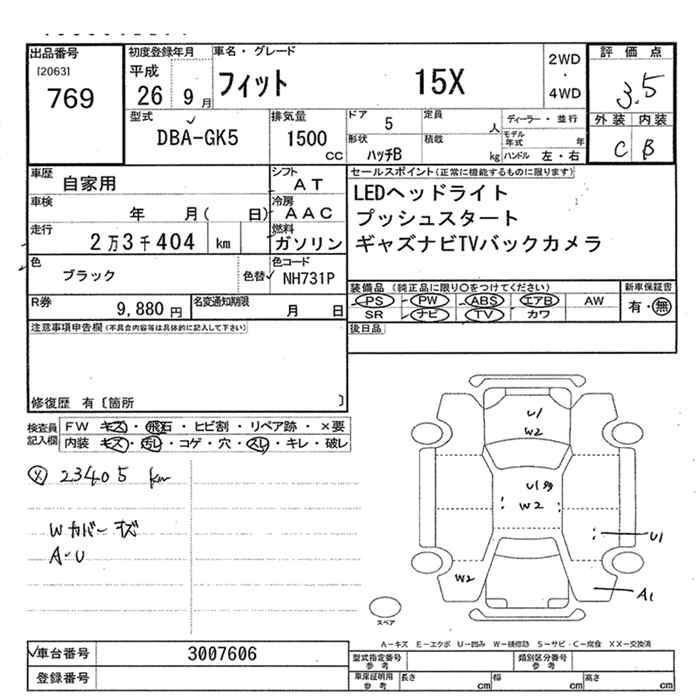 出品番号 初度登録年月 車名・グレード 評価点
[2063] 平成 2WD
769 26 9月 フィット 15X ・ 3.5
4WD
型式 排気量 ドア 5 定員 人 ディーラー・並行 外装 内装
DBA-GK5 1500 cc 形状 ハッチB 積載 kg モデル年式 年 C B
ハンドル 左・右
車歴 自家用 シフト AT セールスポイント(正常に機能するものに限ります)
車検 年 月( 日) 冷房 AAC LEDヘッドライト
プッシュスタート
走行 2万3千404 km 燃料 ガソリン ギャズナビTVバックカメラ
色 ブラック 色替 色コード NH731P
装備品(純正品に限り○をつけてください) 新車保証書
R券 9,880円 名変通知期限 月 日 PS PW ABS エアB AW 有・無
SR ナビ TV カワ
注意事項申告欄(不具合内容等は具体的に記入して下さい) 後日品
修復歴 有〔箇所 〕
検査員記入欄 FW キズ・飛石・ヒビ割・リペア跡・×要
内装 キズ・汚レ・コゲ・穴・スレ・キレ・破レ
23405 km
Wカバーキズ
A・U
U1
W2
U1多
W2
U1
W2
A1
スペア
A-キズ E-エクボ U-凹み W-補修跡 S-サビ・C-腐食 XX-交換済
車台番号 3007606 型式指定番号 参考 類別区分番号 参考
登録番号 車庫証明用 参考 長さ cm 幅 cm 高さ cm